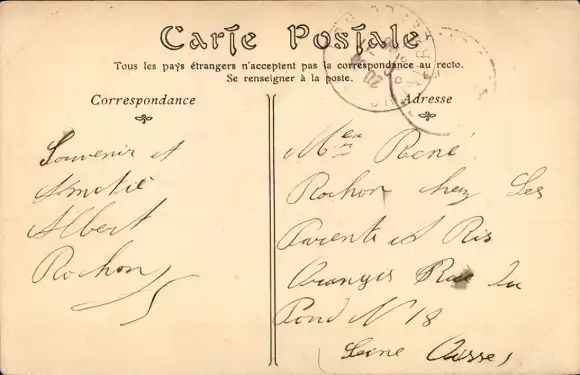 Carte Postale
Tous les pays étrangers n'acceptent pas la correspondance au recto.
Se renseigner à la poste.
Correspondance
Adresse
Souvenir et
Amitié
Albert
Rochon
René
Rochon chez Ses
Parents à Ris
Orangis Rue du
Pond N 18
Seine